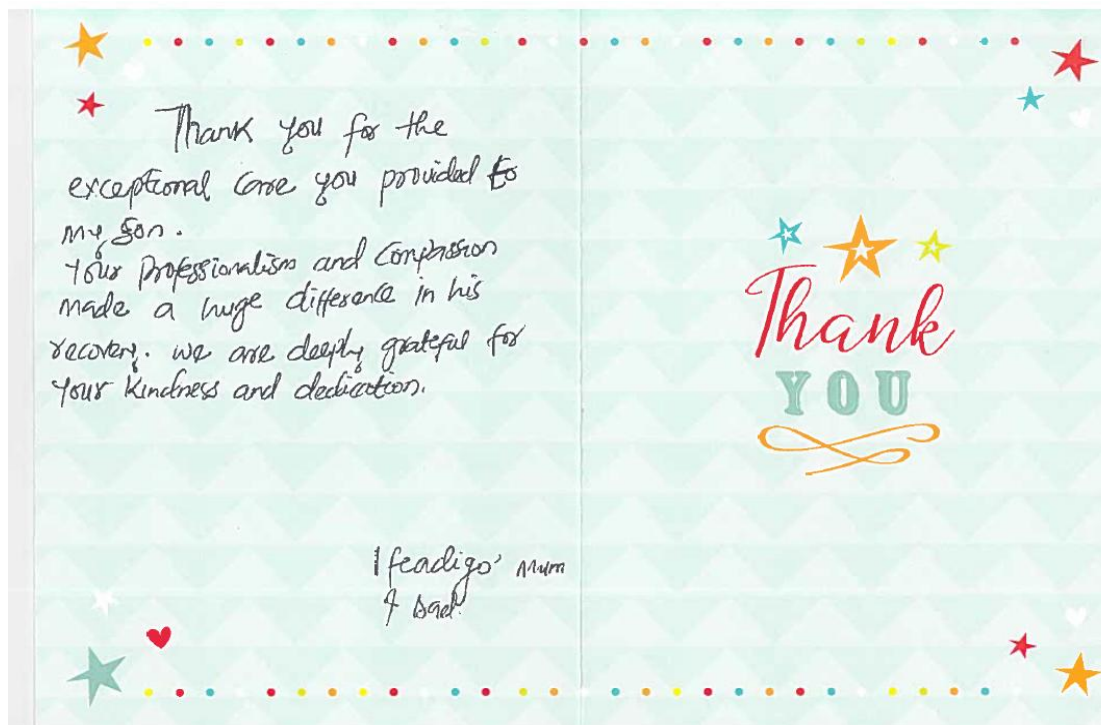 Thank you for the
exceptional care you provided to
my son.
Your professionalism and Compassion
made a huge difference in his
recovery. we are deeply grateful for
your kindness and dedication.
Ifeadigo' Mum
& Dad.
Thank
YOU